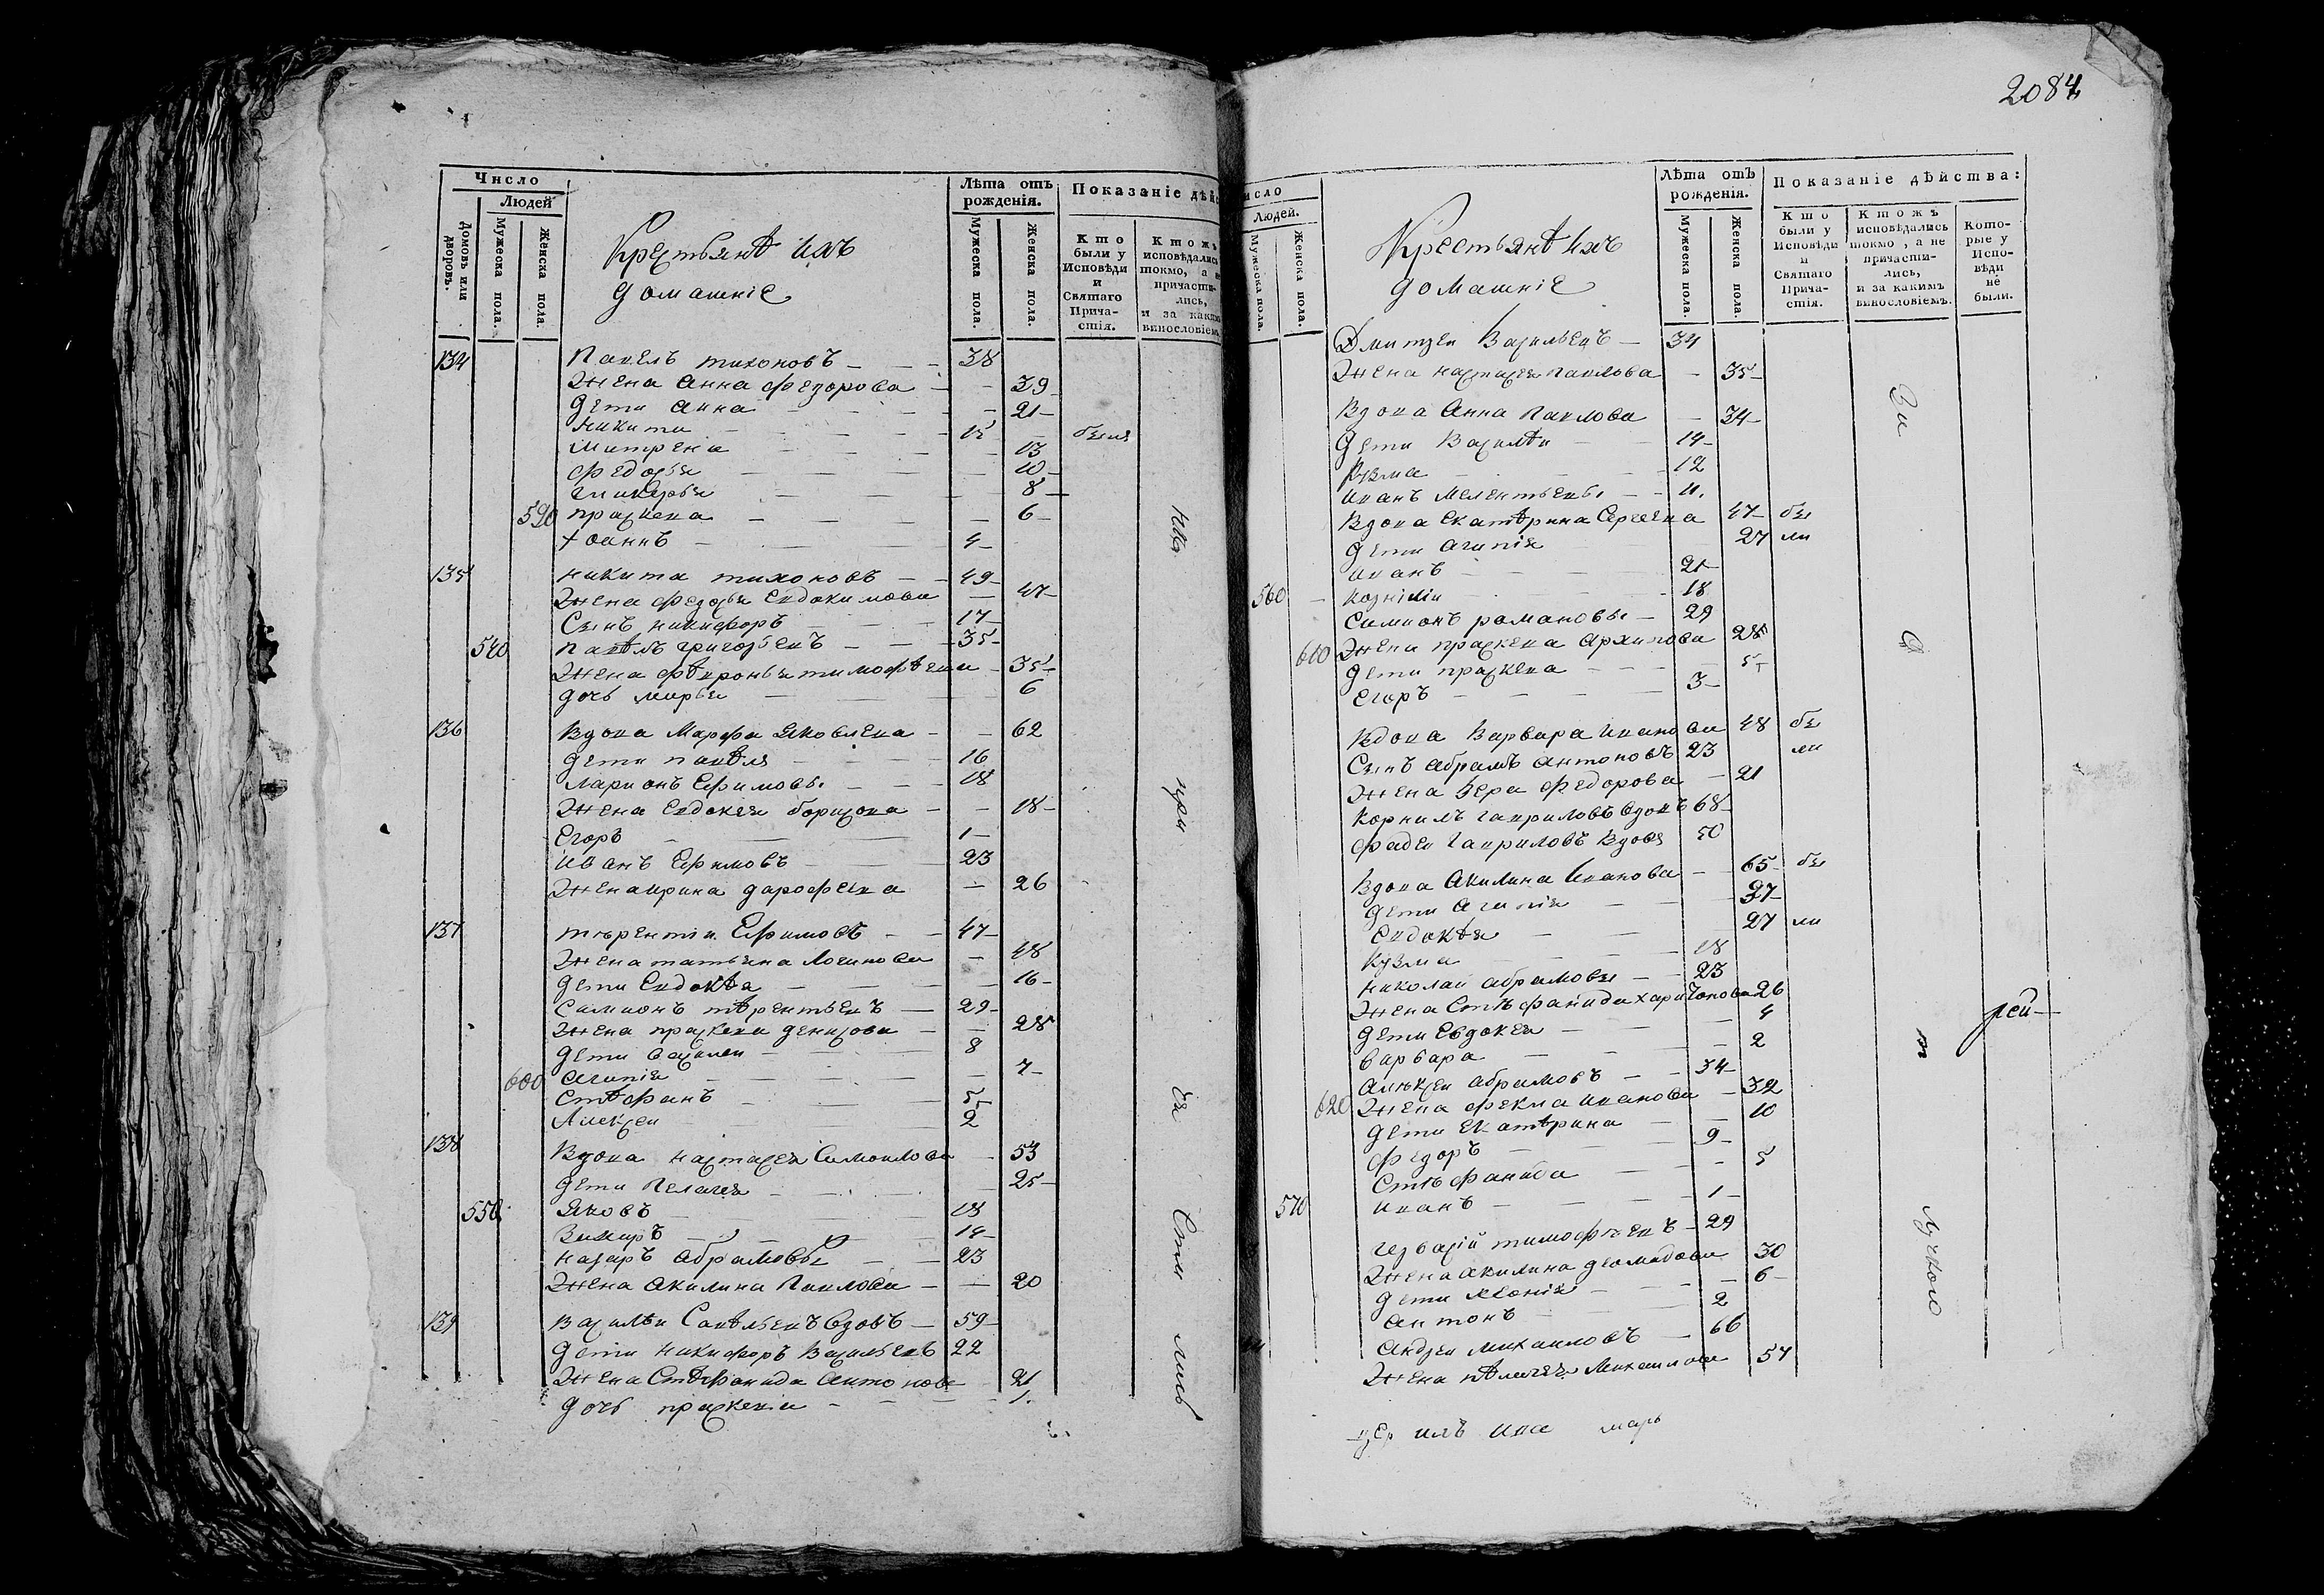 Число
Людей
Домовъ или дворовъ.
Мужеска пола.
Женска пола.
Крестьянѣ ихъ
домашніе
Лѣта отъ рожденія.
Мужеска пола.
Женска пола.
Показаніе дѣйс
Кто были у Исповѣди и Святаго Прича-стія.
Ктожъ исповѣдались токмо, а не причасти-лись, и за какимъ винословіемъ
134 Павелъ тихоновъ 38
Жена Анна федорова 39
Дети Анна 21
Никита 15 были
Матрена 13
федосья
гликерья 8
590 праскева 6
Іоаннъ 4
135 никита тихоновъ 49
Жена федосья Евдокимова 47
Сынъ никифоръ 17
540 павѣлъ григорьевъ 35
Жена фѣвронья тимофѣева 35
дочь марья 6
136 Вдова Марфа Яковлева 62
дети павѣлъ 16
Ларионъ Ефимовы 18
Жена Евдокея борисова 18
Егоръ 1
Иванъ Ефимовъ 23
Жена ирина дарофеева 26
137 терентіи Ефимовъ 47
Жена татьяна Логинова 48
дети Евдокѣа 16
Симионъ тѣрентьевъ 29
Жена праскева денисова 28
дети василеи 8
600 Агапія 7
Стѣфанъ 5
Алексеи 2
138 Вдова настасея Симоилова 53
дети Пелагея 25
550 Яковъ 18
14
назаръ Абрамовы 23
Жена Акилина Павлова 20
139 Василѣи Савѣльевъ вдовъ 59
дети никифоръ Васильевъ 22
Жена Стѣфанида Антонова 21
дочь праскева 1
2084
исло
Людей.
Мужеска пола.
Женска пола.
Крестьянѣ ихъ
домашніе
Лѣта отъ рожденія.
Мужеска пола.
Женска пола.
Показаніе дѣйства:
Кто были у Исповѣди и Святаго Прича-стія.
Ктожъ исповѣдались токмо, а не причасти-лись, и за какимъ винословіемъ.
Кото-рые у Испо-вѣди не были.
Дмитреи Васильевъ 34
Жена настасея павлова 35
Вдова Анна Павлова 34
Дети Василѣи 14
Кузма 12
иванъ Мелентьевы 11
Вдова Екатѣрина Сергеевна 47 бы
дети Агапія 27 ли
иванъ 21
560 18
Симионъ романовы 29
610 Жена праскева Архипова 28
дети праскева 5
Егоръ 3
Вдова Варвара иванова 48 бы
Сынъ абрамъ антоновъ 23 ли
Жена Вера федорова 21
Корнилъ гавриловъ вдовъ 68
фадеи гавриловъ вдовъ 50
Вдова Акилина иванова 65 бы
дети Агапія 37
Евдокѣя 27 ли
Кузма 18
николаи абрамовы 23
Жена Стѣфанида харитонова 26
дети Евдокея 4
варвара 2
Алексеи абрамовъ 34
620 Жена фекла иванова 32
дети Екатѣрина 10
федоръ 9
Стѣфанида 5
570 иванъ 1
гервасій тимофѣевъ 29
Жена акилина диомидова 30
дети 6
антонъ 2
Андреи михаиловъ 66
Жена пѣлагея Михаилова 57